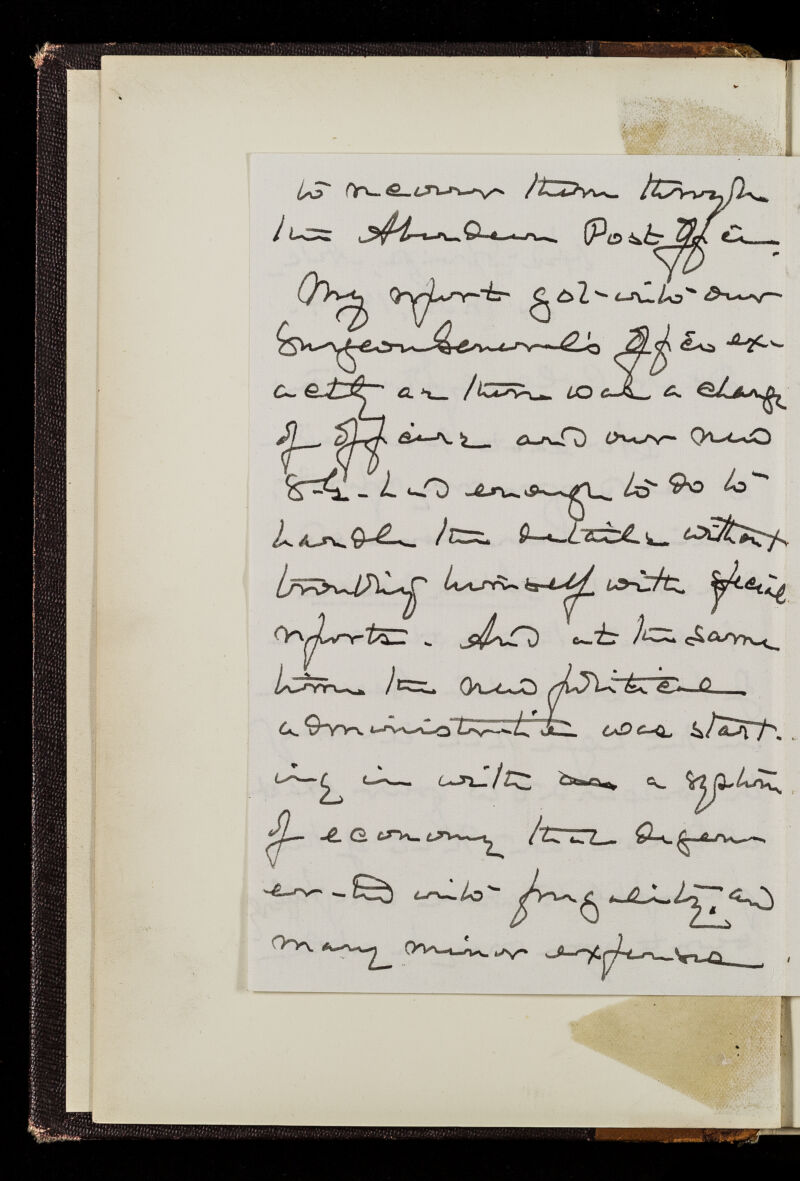 to recover them through
the Aberdeen Post Office.
My report got into our
Surgeon General's Office ex-
actly as there was a change
of officers and our new
S-G- had enough to do to
handle the details without
troubling himself with special
reports. And at the same
time the new political
administration was start-
ing in with a system
of economy that degen-
erated into frugality; and
many minor expense